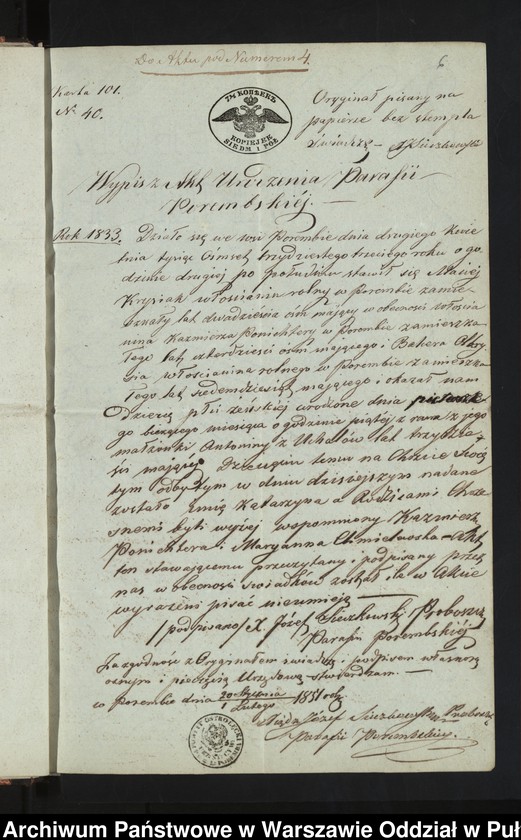 Do Aktu pod Numerem 4.
6
Karta 101.
№ 40.
7½ КОПѢЕКЪ
KOPIEJEK
SIEDM I PÓŁ
Oryginał pisany na
papierze bez stempla
świadczę
Wypis z Akt Urodzenia Parafii
Porembskiéj.
Rok 1833. Działo się we wsi Porembie dnia drugiego Kwie
tnia tysiąc ośmset trzydziestego trzeciego roku o go
dzinie drugiej po południu stawił się Maciej
Krysiak włościanin rolny w Porembie zamie
szkały lat dwadzieścia ośm mający w obecności włościa
nina Kazimierza Ponichtery w Porembie zamieszka
łego lat czterdzieści ośm mającego i
włościanina rolnego w Porembie zamieszka
łego lat siedemdziesiąt mającego i okazał nam
Dziecię płci żeńskiej urodzone dnia pierwsze
go bieżącego miesiąca o godzinie piątej z rana z jego
małżonki Antoniny z lat trzydzie
ści mającej Dziecięciu temu na Chrzcie świę
tym odbytym w dniu dzisiejszym nadane
zostało imię Katarzyna a Rodzicami Chrze
snemi byli wyżej wspomniony Kazimierz
Ponichtera i Maryanna Chmielewska – Akt
ten stawającemu przeczytany i podpisany przez
nas w obecności świadków został ile w Akcie
wyrażeni pisać nieumieją
/podpisano/ X. Józef Sieczkowski Proboszcz
Parafii Porembskiéj
Za zgodność z Oryginałem świadczę i podpisem własno
ręcznym i pieczęcią Urzędową stwierdzam.
w Porembie dnia 20 Stycznia / 1 Lutego 1851 roku
Xiądz Józef Sieczkowski Proboszcz
Parafii Porembskiey
Archiwum Państwowe w Warszawie Oddział w Puł